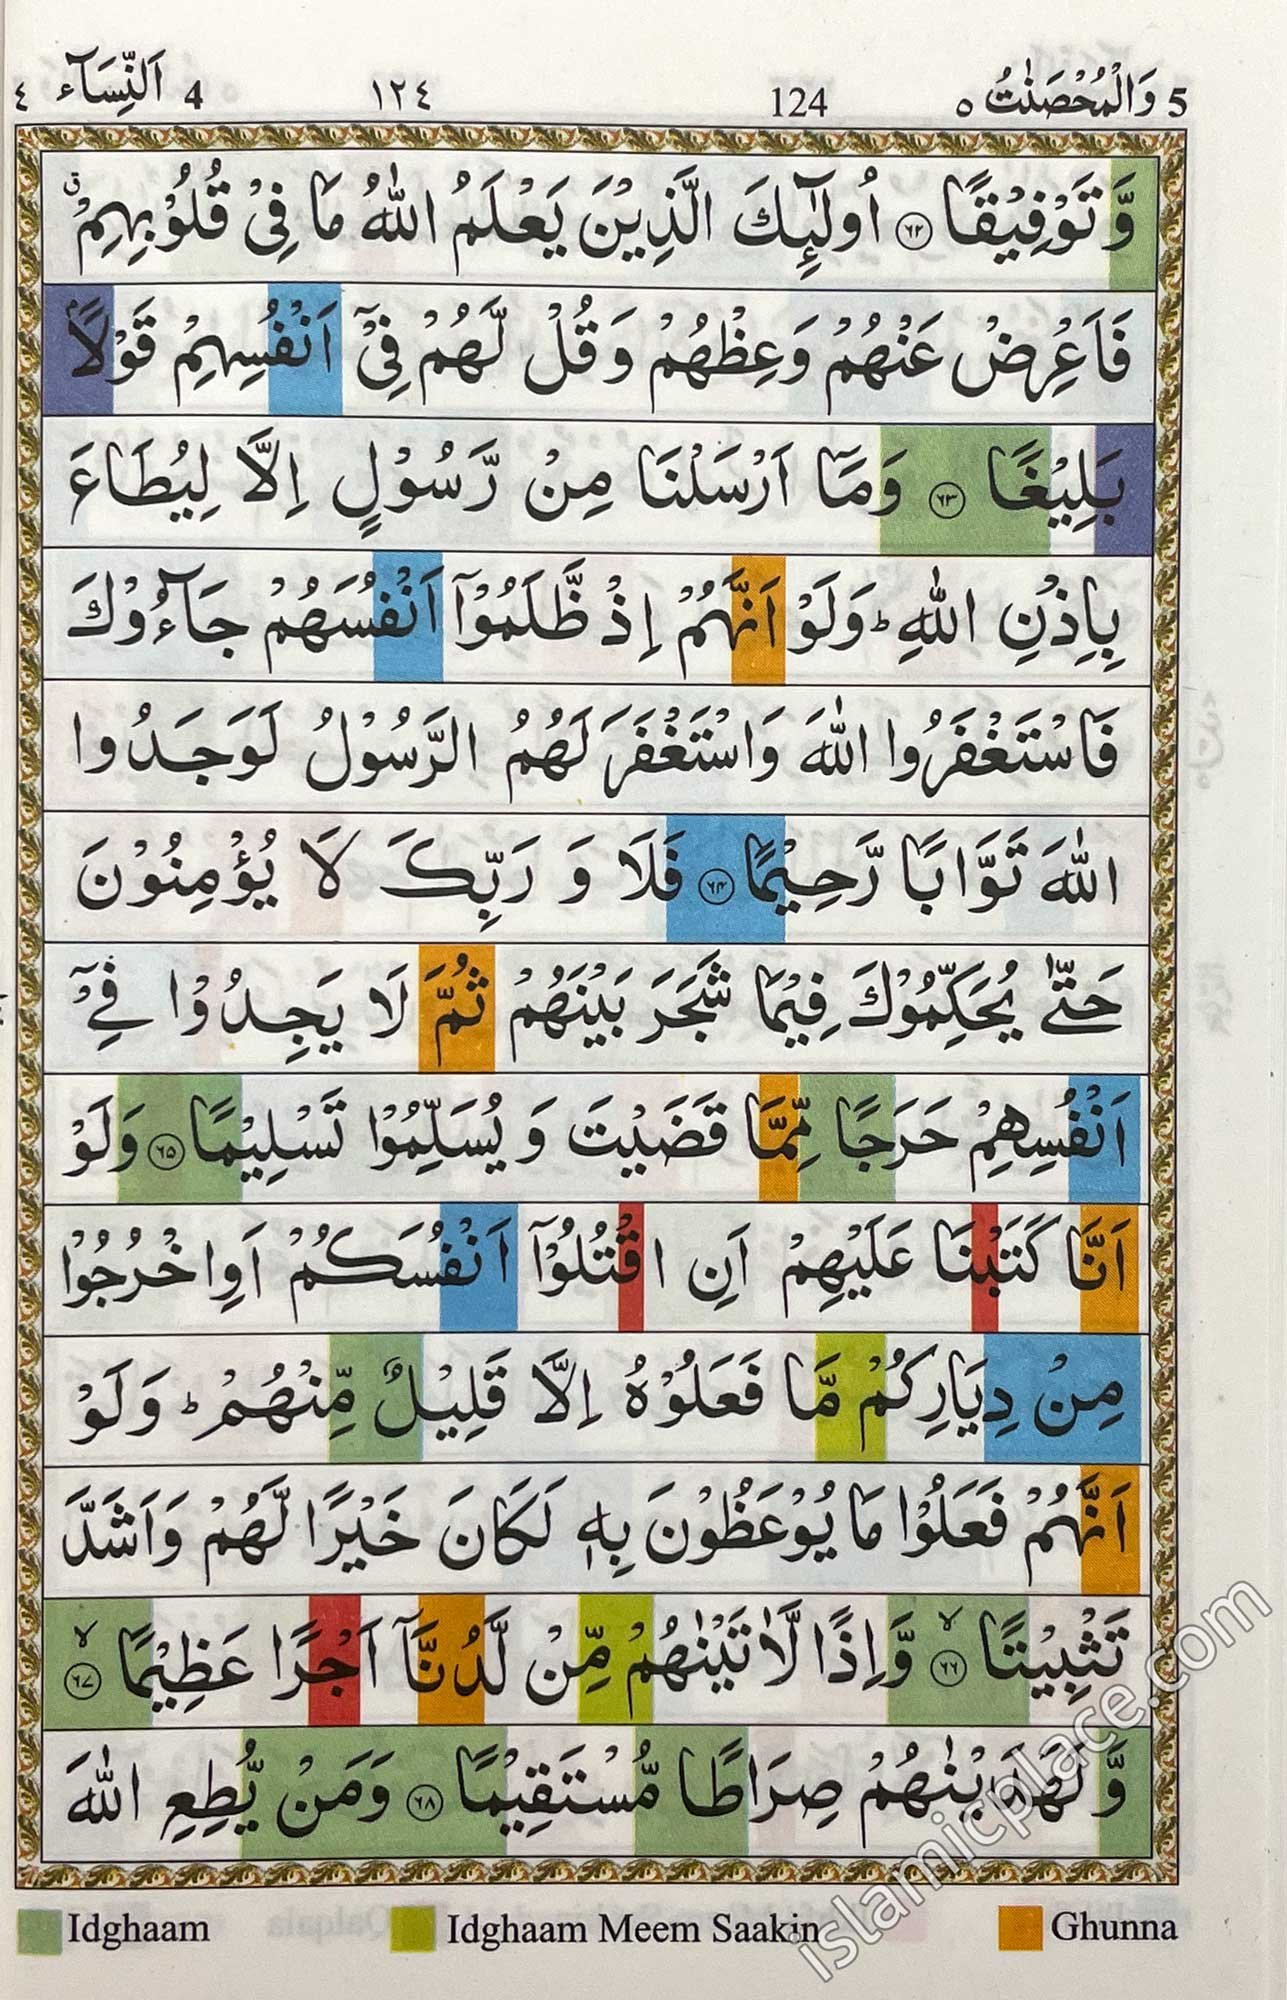 5 وَالْمُحْصَنٰتُ ٥ 124 ١٢٤ 4 اَلنِّسَآء ٤
وَّ تَوْفِيْقًا ۝٦٢ اُولٰٓئِكَ الَّذِيْنَ يَعْلَمُ اللّٰهُ مَا فِيْ قُلُوْبِهِمْ ۗ
فَاَعْرِضْ عَنْهُمْ وَعِظْهُمْ وَ قُلْ لَّهُمْ فِيْٓ اَنْفُسِهِمْ قَوْلًاۢ
بَلِيْغًا ۝٦٣ وَمَآ اَرْسَلْنَا مِنْ رَّسُوْلٍ اِلَّا لِيُطَاعَ
بِاِذْنِ اللّٰهِ ؕ وَلَوْ اَنَّهُمْ اِذْ ظَّلَمُوْٓا اَنْفُسَهُمْ جَآءُوْكَ
فَاسْتَغْفَرُوا اللّٰهَ وَاسْتَغْفَرَ لَهُمُ الرَّسُوْلُ لَوَجَدُوا
اللّٰهَ تَوَّابًا رَّحِيْمًا ۝٦٤ فَلَا وَ رَبِّكَ لَا يُؤْمِنُوْنَ
حَتّٰى يُحَكِّمُوْكَ فِيْمَا شَجَرَ بَيْنَهُمْ ثُمَّ لَا يَجِدُوْا فِيْٓ
اَنْفُسِهِمْ حَرَجًا مِّمَّا قَضَيْتَ وَ يُسَلِّمُوْا تَسْلِيْمًا ۝٦٥ وَلَوْ
اَنَّا كَتَبْنَا عَلَيْهِمْ اَنِ اقْتُلُوْٓا اَنْفُسَكُمْ اَوِ اخْرُجُوْا
مِنْ دِيَارِكُمْ مَّا فَعَلُوْهُ اِلَّا قَلِيْلٌ مِّنْهُمْ ؕ وَلَوْ
اَنَّهُمْ فَعَلُوْا مَا يُوْعَظُوْنَ بِهٖ لَكَانَ خَيْرًا لَّهُمْ وَاَشَدَّ
تَثْبِيْتًا ۙ ۝٦٦ وَّاِذًا لَّاٰتَيْنٰهُمْ مِّنْ لَّدُنَّآ اَجْرًا عَظِيْمًا ۙ ۝٦٧
وَّلَهَدَيْنٰهُمْ صِرَاطًا مُّسْتَقِيْمًا ۝٦٨ وَمَنْ يُّطِعِ اللّٰهَ
Idghaam Idghaam Meem Saakin Ghunna
islamicplace.com